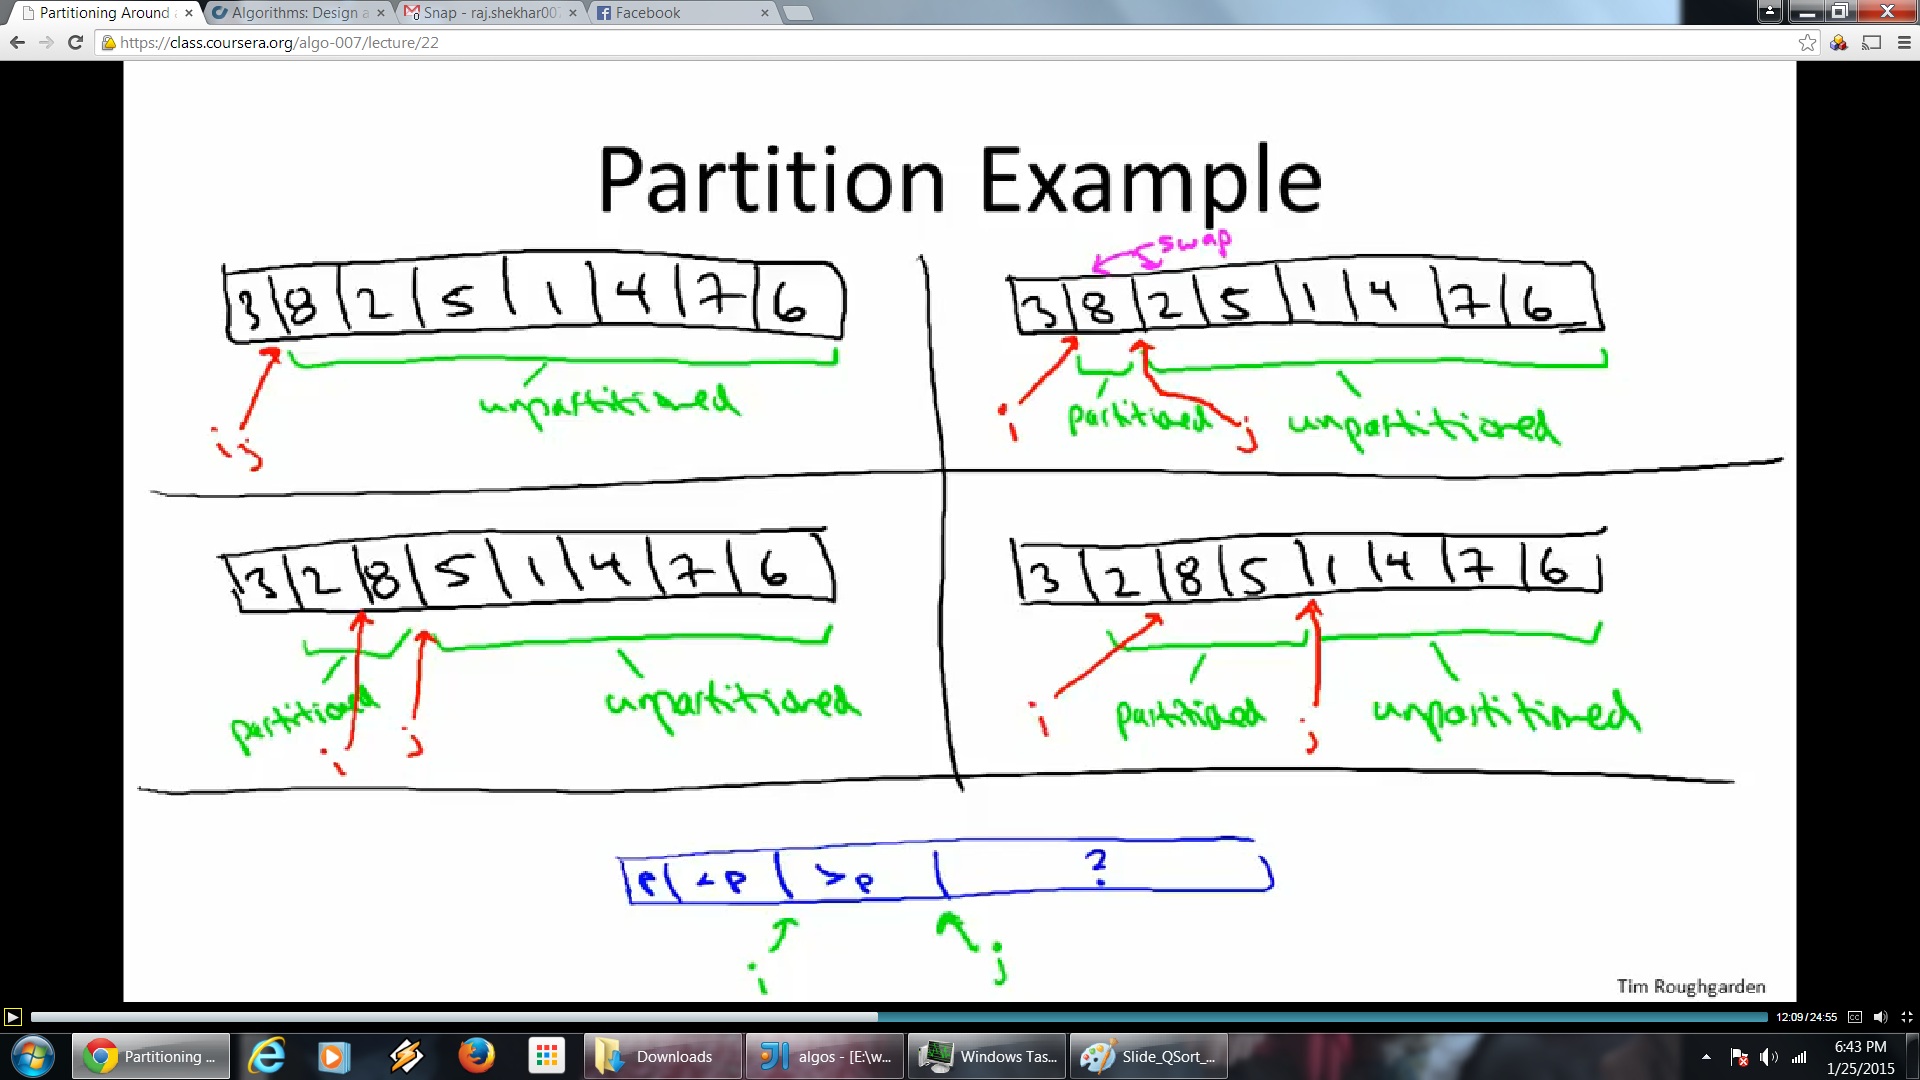 Partitioning Around
Algorithms: Design a
Snap - raj.shekhar007
Facebook
https://class.coursera.org/algo-007/lecture/22
Partition Example
swap
3 8 2 5 1 4 7 6
3 8 2 5 1 4 7 6
unpartitioned
partitioned
unpartitioned
i j
i
j
3 2 8 5 1 4 7 6
3 2 8 5 1 4 7 6
partitioned
unpartitioned
partitioned
unpartitioned
i
j
i
j
p <p >p ?
i
j
Tim Roughgarden
12:09/24:55
CC
Partitioning ...
Downloads
algos - [E:\w...
Windows Tas...
Slide_QSort_...
6:43 PM
1/25/2015